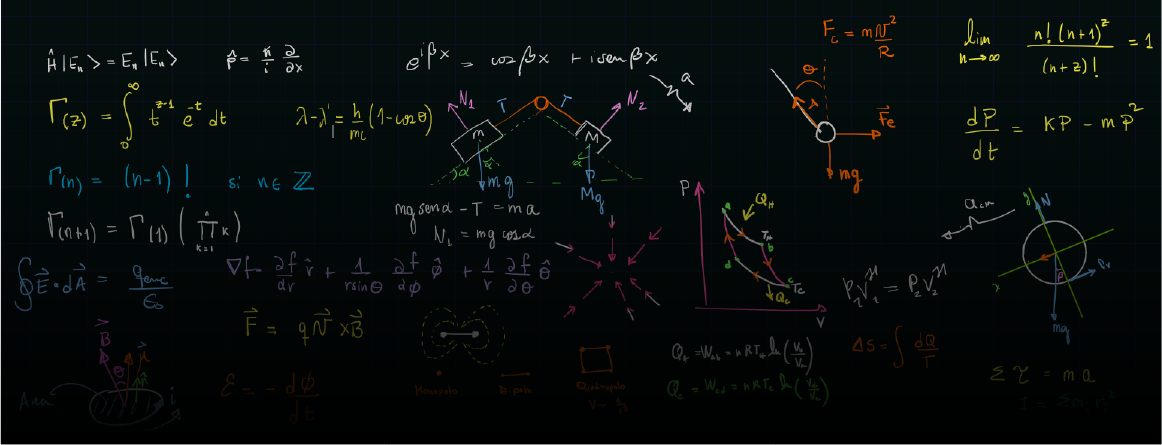 Ĥ|Eₙ> = Eₙ|Eₙ>
p̂ = ℏ/i ∂/∂x
e^{iβx} = cosβx + isenβx
F_c = m v²/R
lim n→∞ n!(n+1)^z / (n+z)! = 1
Γ(z) = ∫₀^∞ t^{z-1} e^{-t} dt
λ-λ' = h/mc (1-cosθ)
N₁ T T N₂ a
m M
α α α
mg Mg
θ
T
F⃗e
mg
dP/dt = KP - mP²
Γ(n) = (n-1)! si n∈ℤ
Γ(n+1) = Γ(1) (∏_{k=1}^{n} k)
mg senα - T = ma
N₁ = mg cosα
P
a Q_H
T_H
b
d
c T_c
Q_c
V
a_cm
y N
x
mg
∮E⃗·dA⃗ = q_enc/ε₀
∇f = ∂f/∂r r̂ + 1/(r sinθ) ∂f/∂φ φ̂ + 1/r ∂f/∂θ θ̂
P₁V₁^γ = P₂V₂^γ
F⃗ = qv⃗ x B⃗
ΔS = ∫ dQ/T
B⃗ μ⃗
θ n̂
Area i
ε = - dφ/dt
Monopolo Dipolo Quadrupolo
Q_H = W_ab = nRT_H ln(V_b/V_a)
Q_c = W_cd = nRT_c ln(
Σ τ = m a
I = Σm·r²